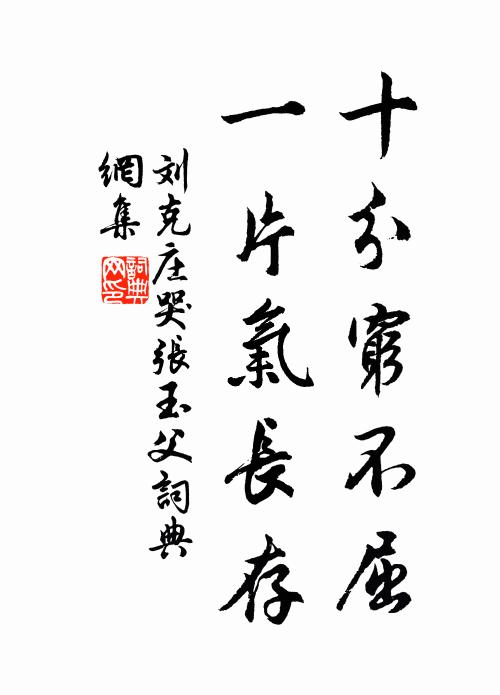 十分窮不屈
一片氣長存
刘克庄哭張玉父詞典
網集
詞典
网印